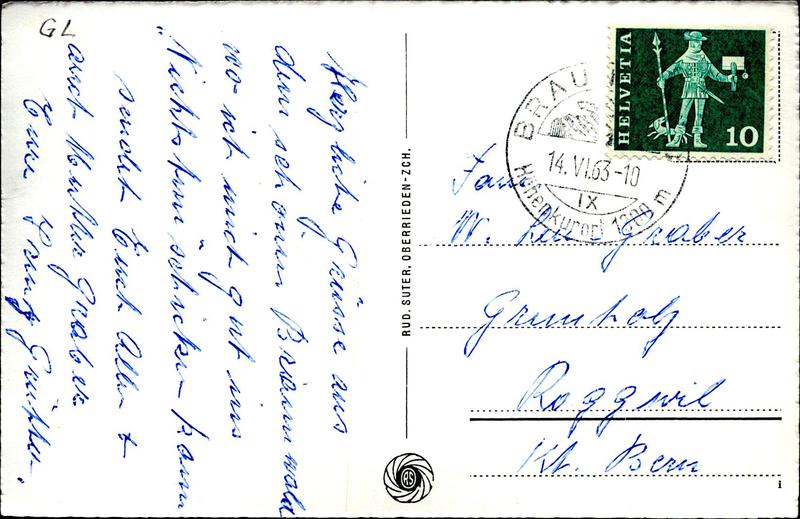 GL
Herzliche Grüsse aus
dem schönen Braunwald
wo ich mich gut ins
"Nichtstun" schicken kann
sendet Euch allen &
auch Mutter Graber
Eure
RUD. SUTER, OBERRIEDEN-ZCH.
RS
HELVETIA
10
BRAU
14. VI. 63-10
IX
Höhenkurort 1300 m
Fam.
W. Graber
Grünholz
Roggwil
Kt. Bern
i